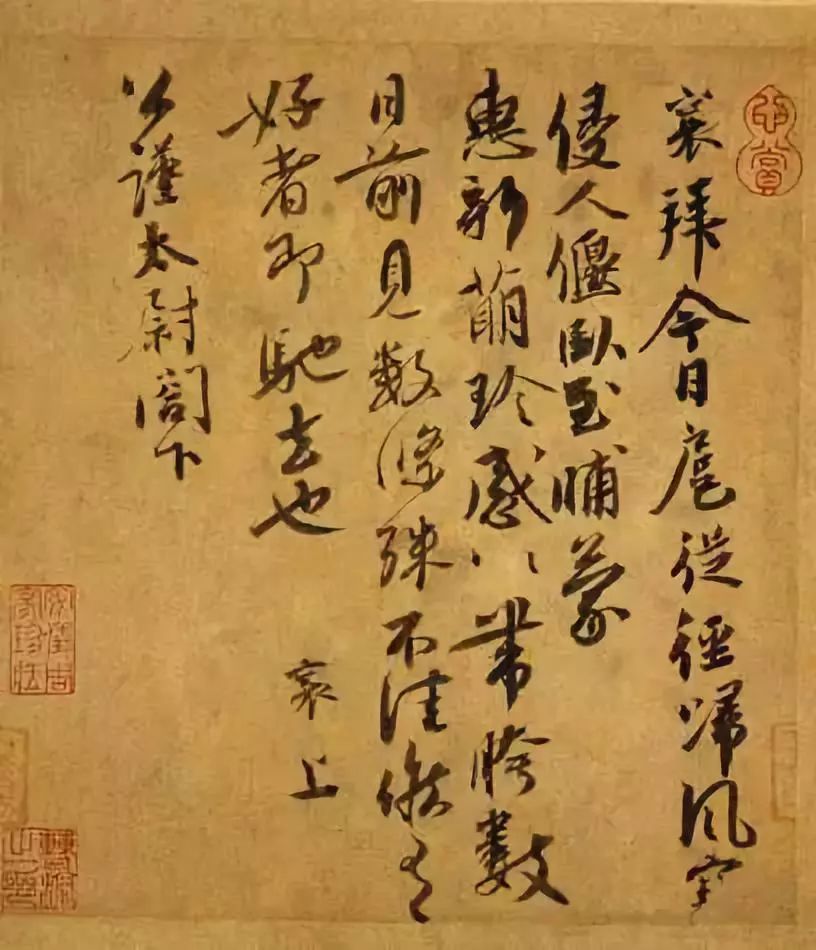 心賞
襄拜今日扈從徑歸風寒
侵人偃臥至晡蒙
惠新萌珍感〻帶胯數
日前見數條殊不佳候有
好者即馳去也 襄上
公謹太尉閤下